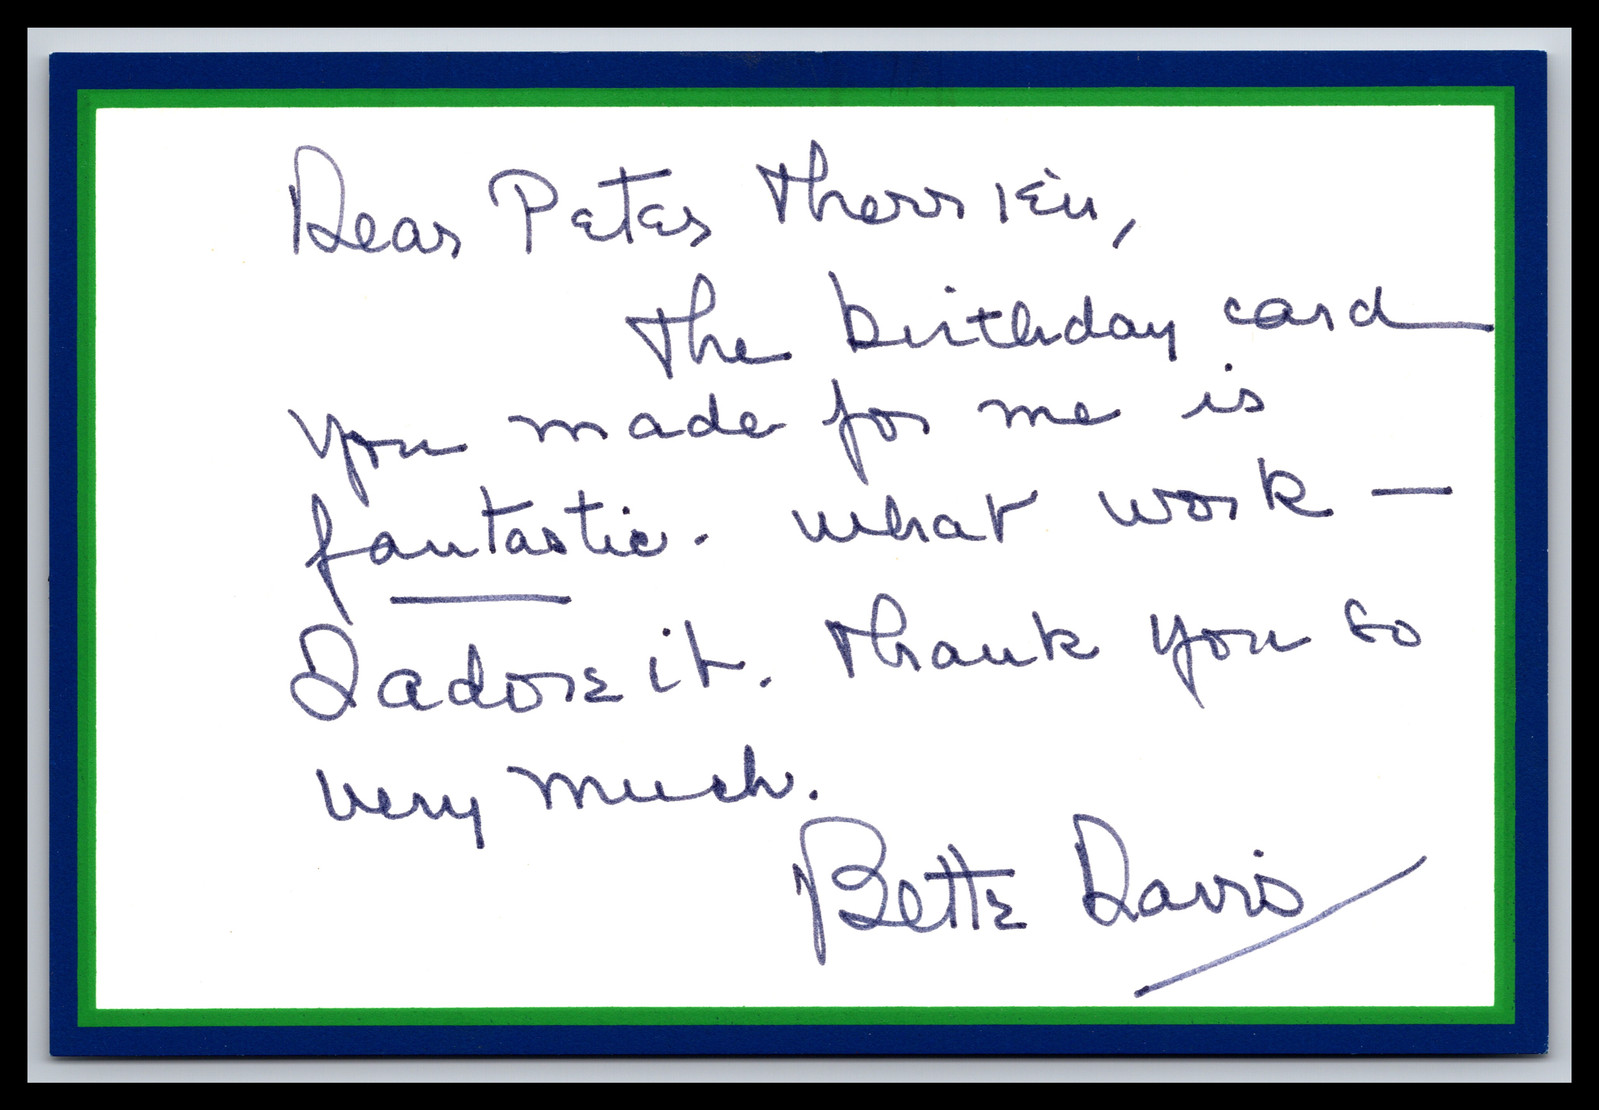 Dear Peter Therrien,
The birthday card
you made for me is
fantastic. What work —
I adore it. Thank you so
very much.
Bette Davis